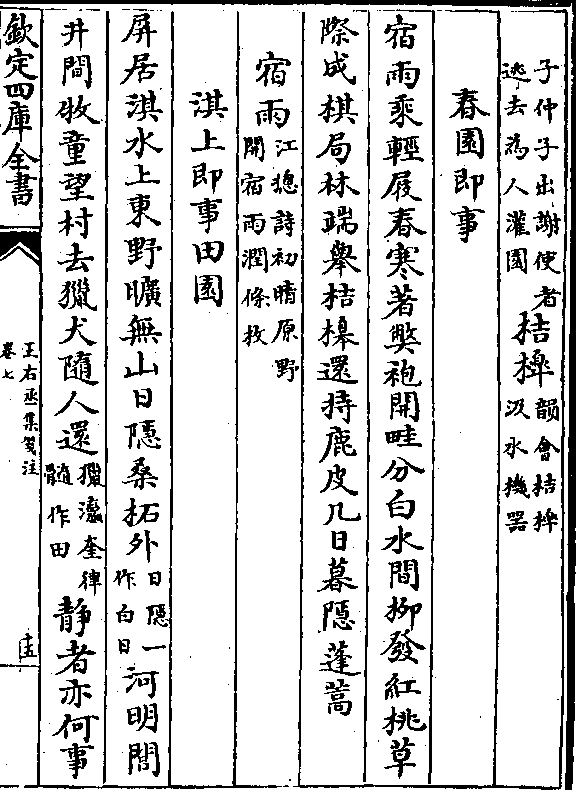 子仲子出謝使者
逃去為人灌園
桔槹
韻會桔槹
汲水機器
春園即事
宿雨乘輕屐春寒著弊袍開畦分白水間栁發紅桃草
際成棋局林端舉桔槹還持鹿皮几日暮隱蓬蒿
宿雨
江總詩初晴原野
開宿雨潤條枚
淇上即事田園
屏居淇水上東野曠無山日隱桑柘外
日隱一
作白日
河明閭
井間牧童望村去獵犬隨人還
獵瀛奎律
髓作田
静者亦何事
欽定四庫全書
王右丞集箋注
卷七
十五